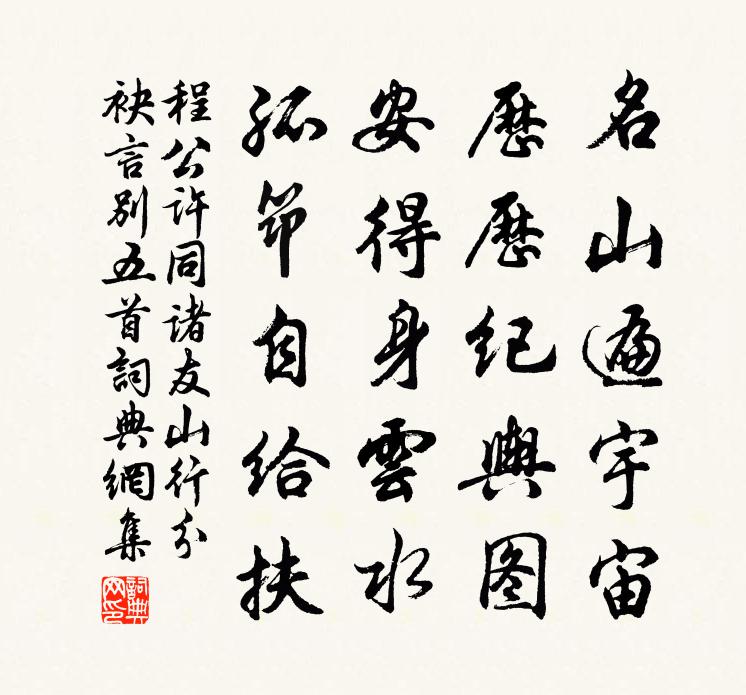 名山遍宇宙
歷歷紀輿图
安得身雲水
孤筇自给扶
程公許同諸友山行分
袂言別五首詞典網集